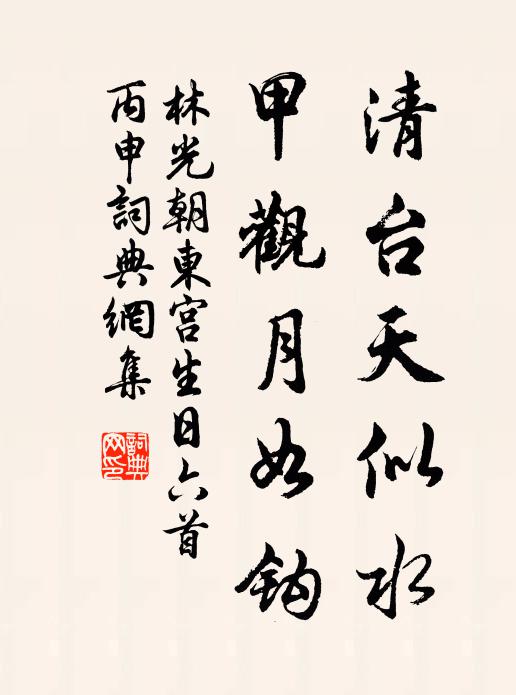 清台天似水
甲觀月如鈎
林光朝東宮生日六首
丙申詞典網集
詞典網印